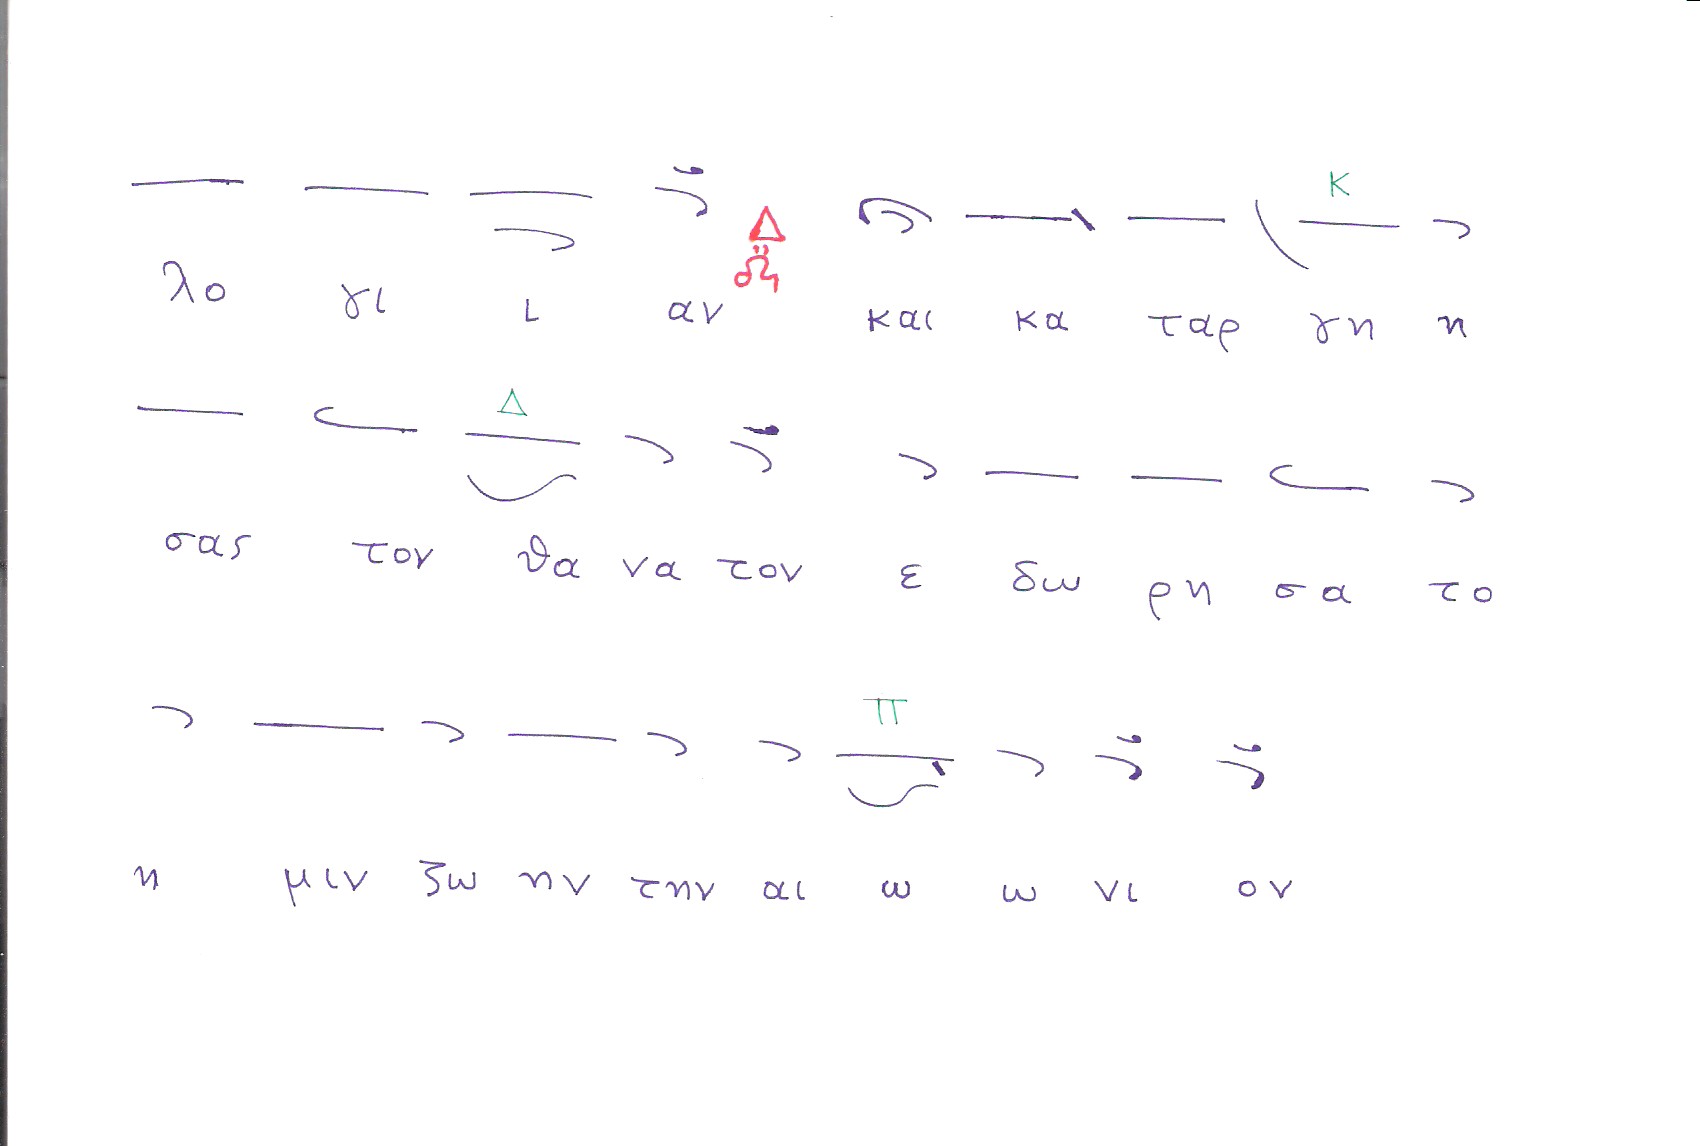 Δ Κ
λο γι ι αν και κα ταρ γη η
Δ
σας τον θα να τον ε δω ρη σα το
Π
η μιν ζω ην την αι ω ω νι ον